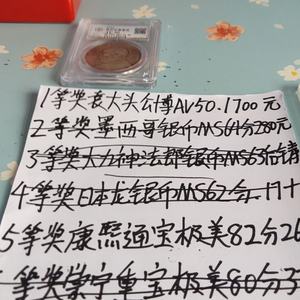 1等奖袁大头公博AV50.1700元
2等奖墨西哥银币MS64分280元
3等奖大力神法郎银币MS63
4等奖日本龙银币MS62分
5等奖康熙通宝极美82分26
等奖崇宁重宝极美80分3